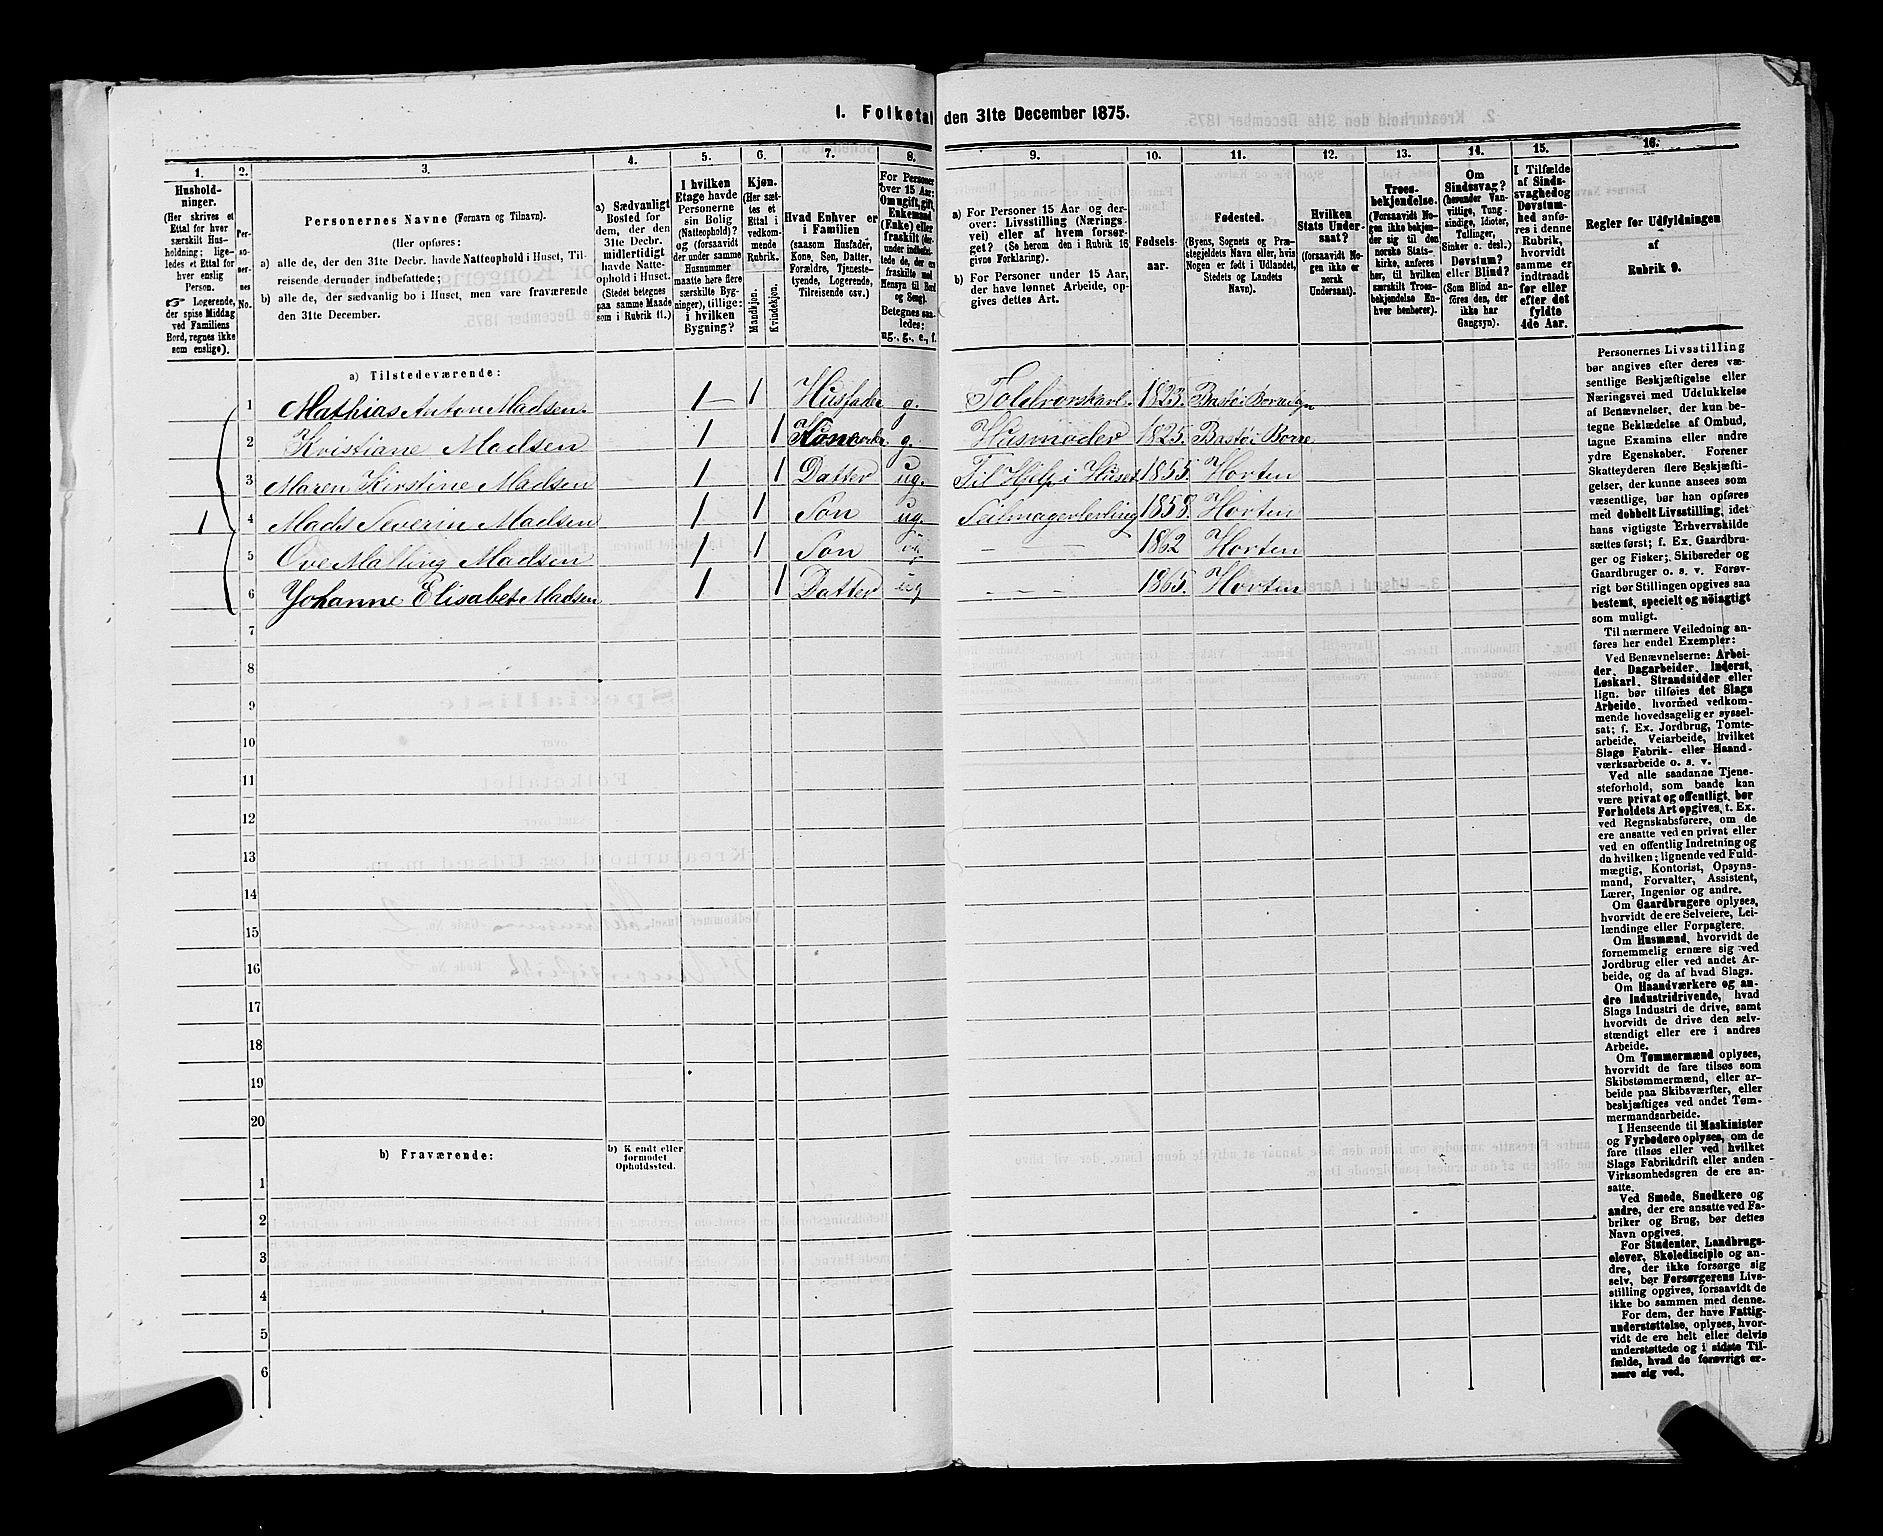 1. Folketal den 31te December 1875.
1. 2. 3. 4. 5. 6. 7. 8. 9. 10. 11. 12. 13. 14. 15. 16.
Hushold-
ninger.
(Her skrives et
Ettal for hver
særskilt Hus-
holdning; lige-
ledes et Ettal for
hver enslig
Person.
☞ Logerende,
der spise Middag
ved Familiens
Bord, regnes ikke
som enslige).
Per-
so-
ner-
nes
No.
Personernes Navne (Fornavn og Tilnavn).
(Her opføres:
a) alle de, der den 31te Decbr. havde Natteophold i Huset, Til-
reisende derunder indbefattede;
b) alle de, der sædvanlig bo i Huset, men vare fraværende
den 31te December.
a) Sædvanligt
Bosted for
dem, der den
31te Decbr.
midlertidigt
havde Natte-
ophold i Huset.
(Stedet betegnes
paa samme Maade
som i Rubrik 11.)
I hvilken
Etage havde
Personerne
sin Bolig
(Natteophold)?
og (forsaavidt
der under samme
Husnummer
maatte høre flere
særskilte Byg-
ninger), tillige:
i hvilken
Bygning?
Kjøn.
(Her sæt-
tes et
Ettal i
vedkom-
mende
Rubrik.
Mandkjøn.
Kvindekjøn.
Hvad Enhver er
i Familien
(saasom Husfader,
Kone, Søn, Datter,
Forældre, Tjeneste-
tyende, Logerende,
Tilreisende osv.)
For Personer
over 15 Aar:
Om ugift, gift,
Enkemand
(Enke) eller
fraskilt (der-
under indbefat-
tede de, der ere
fraskilte med
Hensyn til Bord
og Seng).
Betegnes saa-
ledes:
ug., g., e., f.
a) For Personer 15 Aar og der-
over: Livsstilling (Nærings-
vei) eller af hvem forsør-
get? (Se herom den i Rubrik 16
givne Forklaring).
b) For Personer under 15 Aar,
der have lønnet Arbeide, op-
gives dettes Art.
Fødsels-
aar.
Fødested.
(Byens, Sognets og Præ-
stegjeldets Navn eller, hvis
Nogen er født i Udlandet,
Stedets og Landets
Navn).
Hvilken
Stats Under-
saat?
(forsaavidt No-
gen ikke er
norsk
Undersaat).
Troes-
bekjendelse.
(Forsaavidt No-
gen ikke bekjen-
der sig til den
norske Stats-
kirke, anføres
her, til hvilken
særskilt Troes-
bekjendelse En-
hver henhører).
Om
Sindssvag?
(herunder Van-
vittige, Tung-
sindige, Idioter,
Tullinger,
Sinker o. desl.)
Døvstum?
eller Blind?
(Som Blind an-
føres den, der
ikke har
Gangsyn).
I Tilfælde
af Sinds-
svaghed og
Døvstum-
hed anfø-
res i denne
Rubrik,
hvorvidt
samme er
indtraadt
før eller
efter det
fyldte
4de Aar.
Regler for Udfyldningen
af
Rubrik 9.
a) Tilstedeværende:
1 Mathias Anton Madsen. 1 1 Husfader g. Toldrorskarl. 1823. Bastø i Borre
2 Kristiane Madsen 1 1 Kone g. Husmoder 1825. Bastø i Borre
3 Maren Kirstine Madsen 1 1 Datter ug. Til Hjelp i Huset 1855. Horten
1 4 Mads Severin Madsen 1 1 Søn ug. Seilmagerlerling 1858. Horten
5 Ove Malling Madsen 1 1 Søn ug — — 1862 Horten
6 Johanne Elisabet Madsen 1 1 Datter ug - - - 1865. Horten
7
8
9
10
11
12
13
14
15
16
17
18
19
20
b) Fraværende:
b) Kendt eller
formodet
Opholdssted.
1
2
3
4
5
6
Personernes Livsstilling
bør angives efter deres væ-
sentlige Beskjæftigelse eller
Næringsvei med Udelukkelse
af Benævnelser, der kun be-
tegne Beklædelse af Ombud,
tagne Examina eller andre
ydre Egenskaber. Forener
Skatteyderen flere Beskjæfti-
gelser, der kunne ansees som
væsentlige, bør han opføres
med dobbelt Livsstilling, idet
hans vigtigste Erhvervskilde
sættes først; f. Ex. Gaardbru-
ger og Fisker; Skibsreder og
Gaardbruger o. s. v. Forøv-
rigt bør Stillingen opgives saa
bestemt, specielt og nøiagtigt
som muligt.
Til nærmere Veiledning an-
føres her endel Exempler:
Ved Benævnelserne: Arbei-
der, Dagarbeider, Inderst,
Løskarl, Strandsidder eller
lign. bør tilføies det Slags
Arbeide, hvormed vedkom-
mende hovedsagelig er syssel-
sat; f. Ex. Jordbrug, Tomte-
arbeide, Veiarbeide, hvilket
Slags Fabrik- eller Haand-
værksarbeide o. s. v.
Ved alle saadanne Tjene-
steforhold, som baade kan
være privat og offentligt, bør
Forholdets Art opgives, t. Ex.
ved Regnskabsførere, om de
ere ansatte ved en privat eller
ved en offentlig Indretning og
da hvilken; lignende ved Fuld-
mægtig, Kontorist, Opsyns-
mand, Forvalter, Assistent,
Lærer, Ingeniør og andre.
Om Gaardbrugere oplyses,
hvorvidt de ere Selveiere, Lei-
lændinge eller Forpagtere.
Om Husmænd, hvorvidt de
fornemmelig ernære sig ved
Jordbrug eller ved andet Ar-
beide, og da af hvad Slags.
Om Haandværkere og an-
dre Industridrivende, hvad
Slags Industri de drive, samt
hvorvidt de drive den selv-
stændigt eller ere i andres
Arbeide.
Om Tømmermænd oplyses,
hvorvidt de fare tilsøs som
Skibstømmermænd, eller ar-
beide paa Skibsværfter, eller
beskjæftiges ved andet Tøm-
mermandsarbeide.
I Henseende til Maskinister
og Fyrbødere oplyses, om de
fare tilsøs eller ved hvilket
Slags Fabrikdrift eller anden
Virksomhedsgren de ere an-
satte.
Ved Smede, Snedkere og
andre, der ere ansatte ved Fa-
briker og Brug, bør dettes
Navn opgives.
For Studenter, Landbrugs-
elever, Skoledisciple og an-
dre, der ikke forsørge sig
selv, bør Forsørgerens Livs-
stilling opgives, forsaavidt de
ikke bo sammen med denne.
For dem, der have Fattig-
understøttelse, oplyses, hvor-
vidt de ere helt eller delvis
understøttede og i sidste Til-
fælde, hvad de forøvrigt er-
nære sig ved.